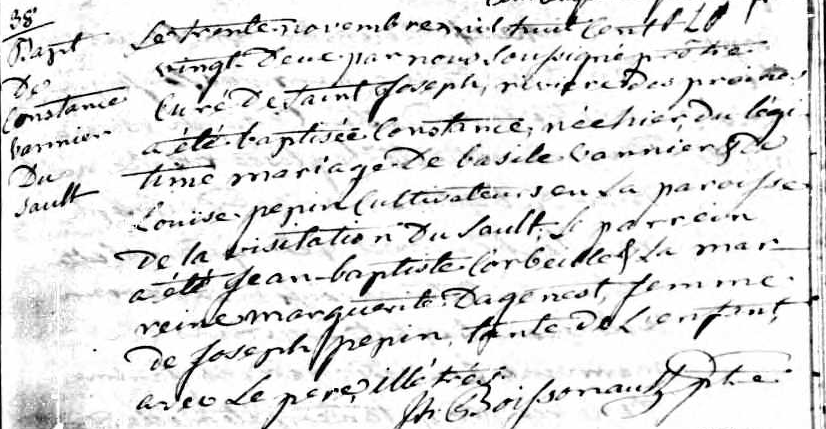 38
Bapt
De
Constance
Vannier
Du
Sault
Le trente novembre mil huit cent
vingt Deux par nous soussigné prêtre
Curé De Saint Joseph, riviere des prairies
a été baptisée Constance, née hier, du légi-
time mariage De basile Vannier & De
Louise pepin Cultivateurs en La paroisse
De la visitation Du Sault. Le parrein
a été Jean-baptiste Corbeille & La mar-
reine marguerite Dagenest, femme
De Joseph pepin, tante De L'enfant,
avec Le pere, illétrés.
Boissonault ptre